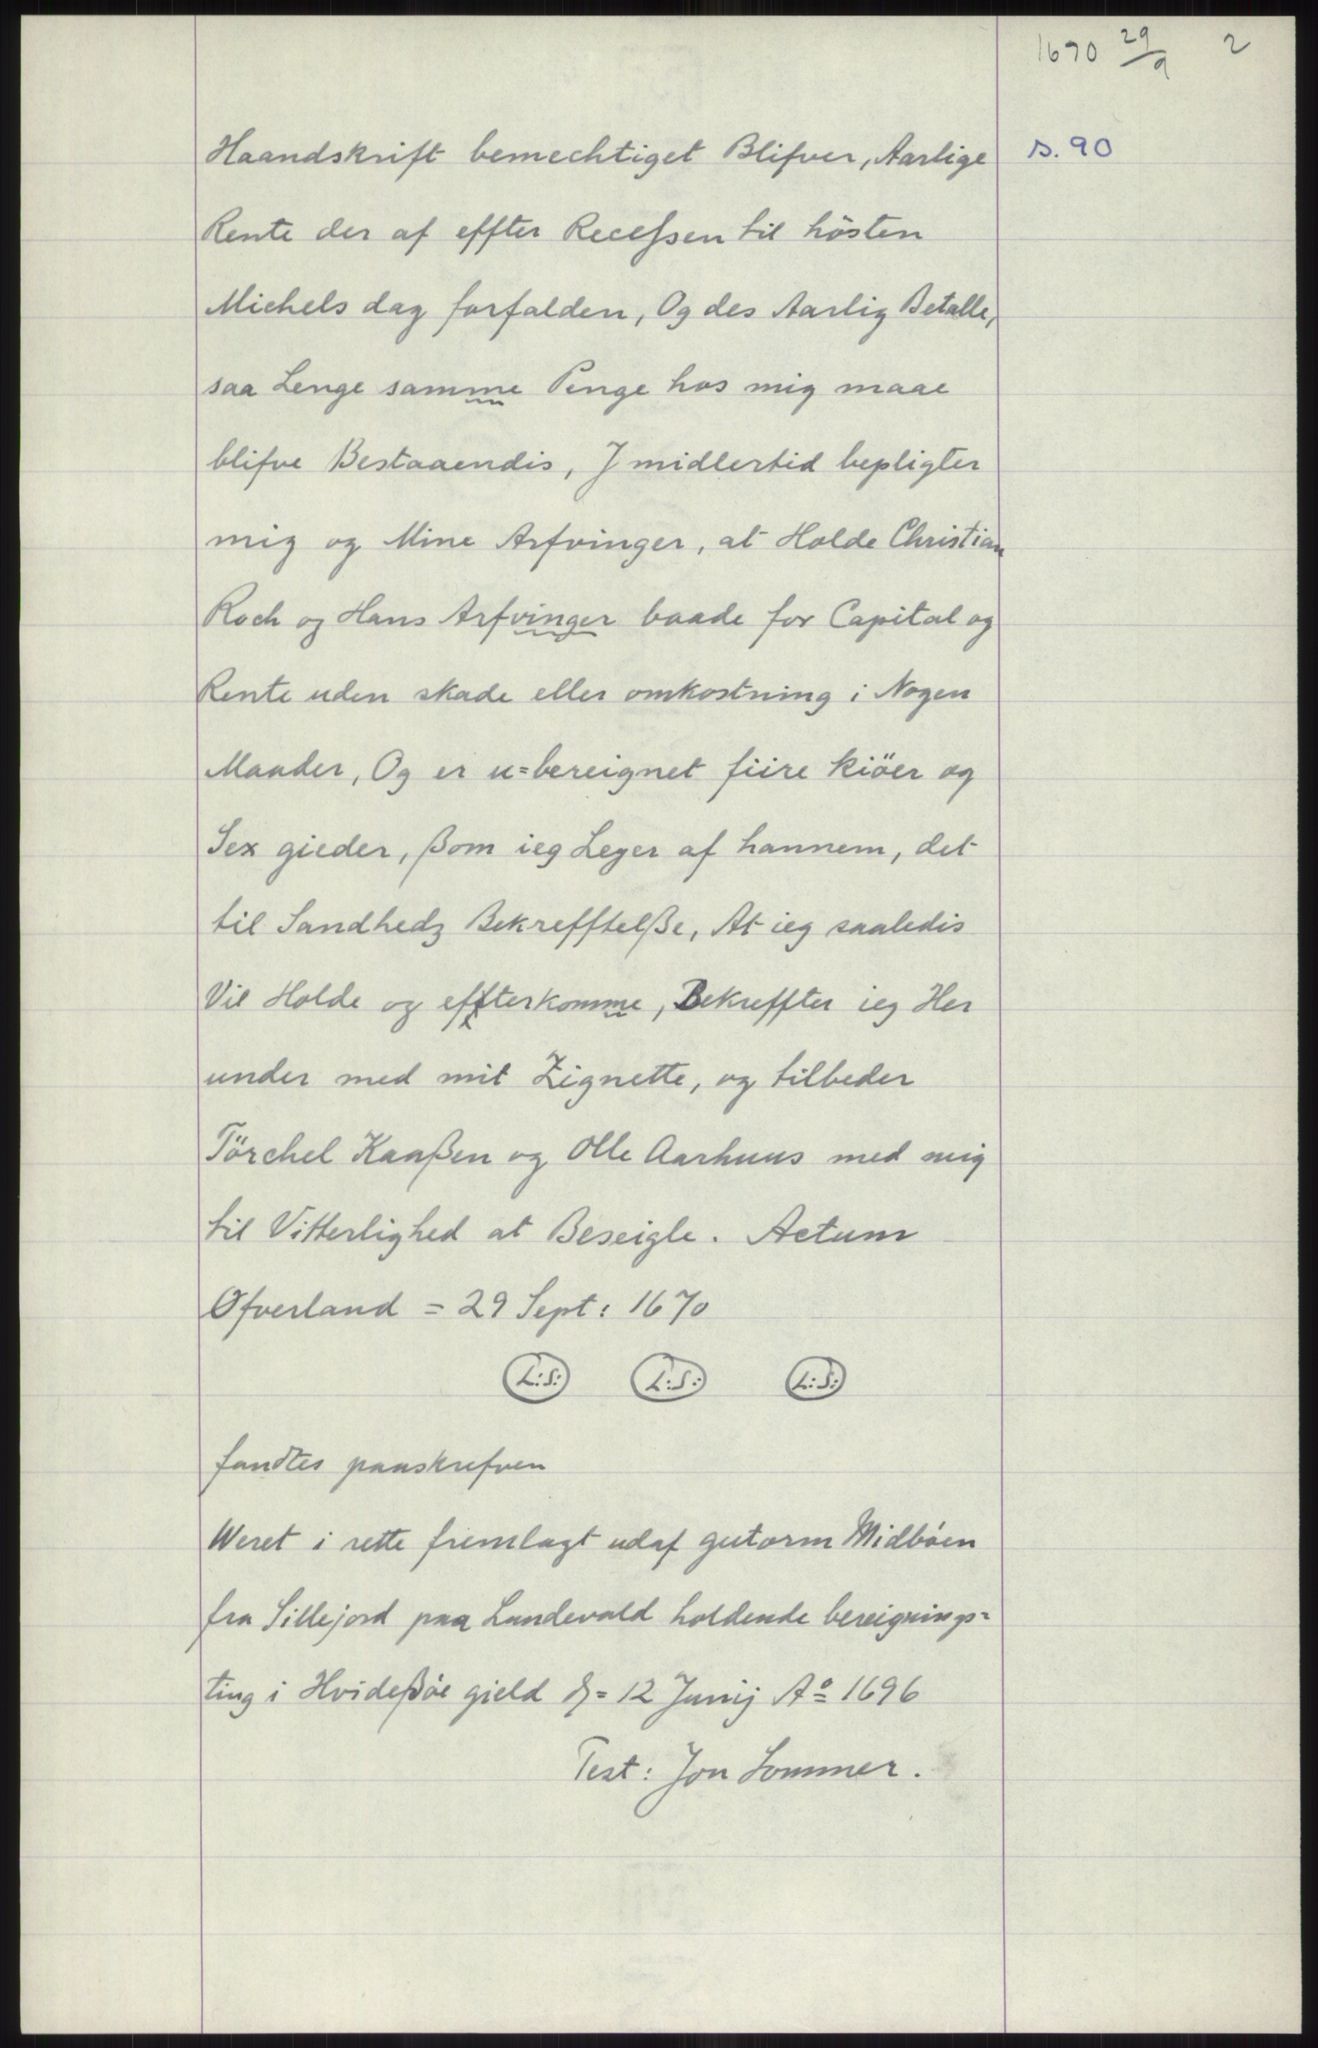 1670 29/9 2
Haandskrift bemechtiget Blifver, Aarlige s. 90
Rente der af effter Recessen til hösten
Michels dag forfalden, Og des Aarlig Betalle,
saa Lenge samme Penge hos mig maae
blifve Bestaaendis, J midlertid bepligter
mig og Mine Arfvinger, at Holde Christian
Roch og Hans Arfvinger baade for Capital og
Rente uden skade eller omkostning i Nogen
Maader, Og er u=bereignet fiire kiöer og
Sex gieder, ßom ieg Leyer af hannem, det
til Sandhedz Bekrefftelße, At ieg saaledis
Vil Holde og effterkomme, Bekreffter ieg Her
under med mit Zignette, og tilbeder
Törchel Kaaßen og Olle Aarhuus med mig
til Vitterlighed at Beseigle. Actum
Ofverland = 29 Sept: 1670
L:S: L:S: L:S:
fandtes paaskrefven
Weret i rette fremlagt udaf gutorm Midböen
fra Sillejord paa Lundevald holdende bereignings=
ting i Hvideßöe gield d= 12 Junij Ao 1696
Test: Jon Sommer.